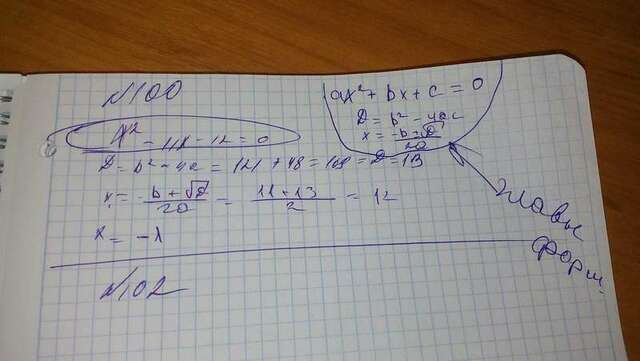 №100
x² - 11x - 12 = 0
D = b² - 4ac = 121 + 48 = 169 = D = 13
x = -b + √D / 2a = 11 + 13 / 2 = 12
x = -1
№102
ax² + bx + c = 0
D = b² - 4ac
x = -b ± √D / 2a
главы
форм.